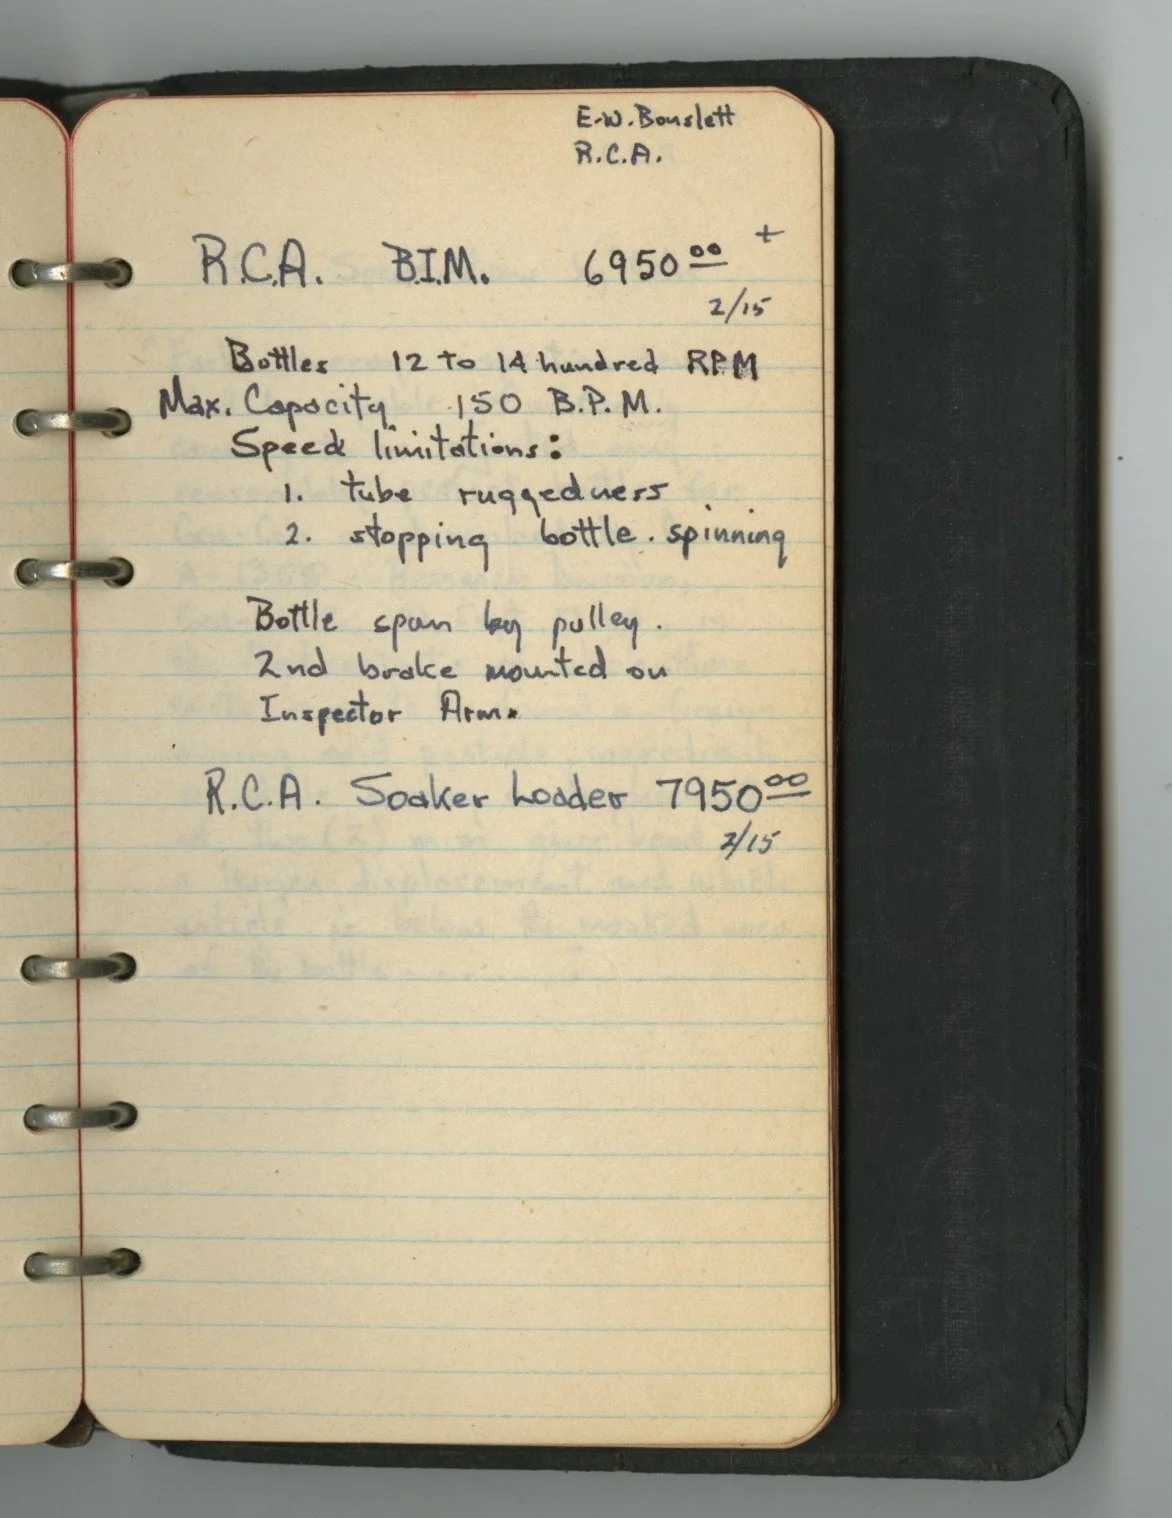 E.W. Bonslett
R.C.A.
R.C.A. B.I.M. 6950 00 +
2/15
Bottles 12 to 14 hundred RPM
Max. Capacity 150 B.P.M.
Speed limitations:
1. tube ruggedness
2. stopping bottle. spinning
Bottle spun by pulley.
2nd brake mounted on
Inspector Arm.
R.C.A. Soaker Loader 7950 00
2/15